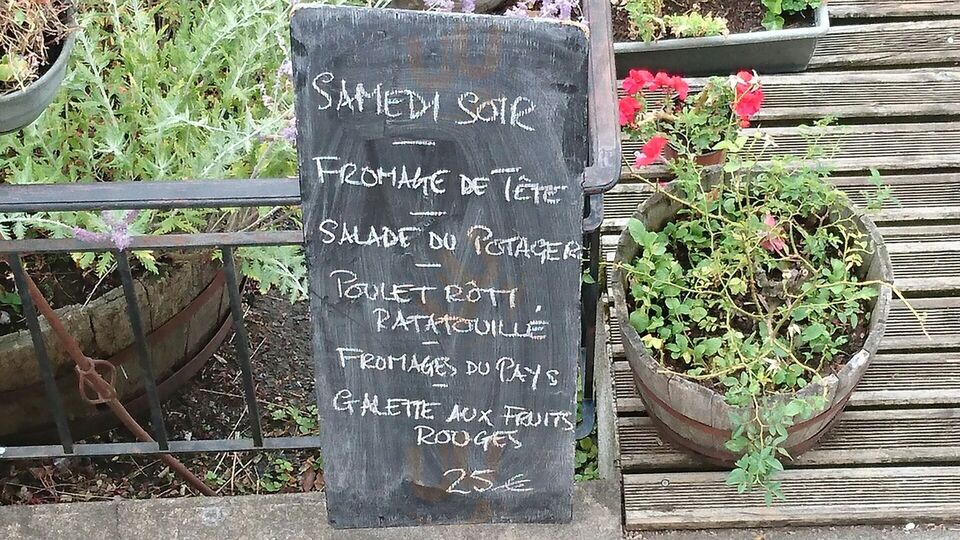 SAMEDI SOIR
FROMAGE DE TÊTE
SALADE DU POTAGER
POULET RÔTI
RATATOUILLÉ
FROMAGES DU PAYS
GALETTE AUX FRUITS
ROUGES
25€